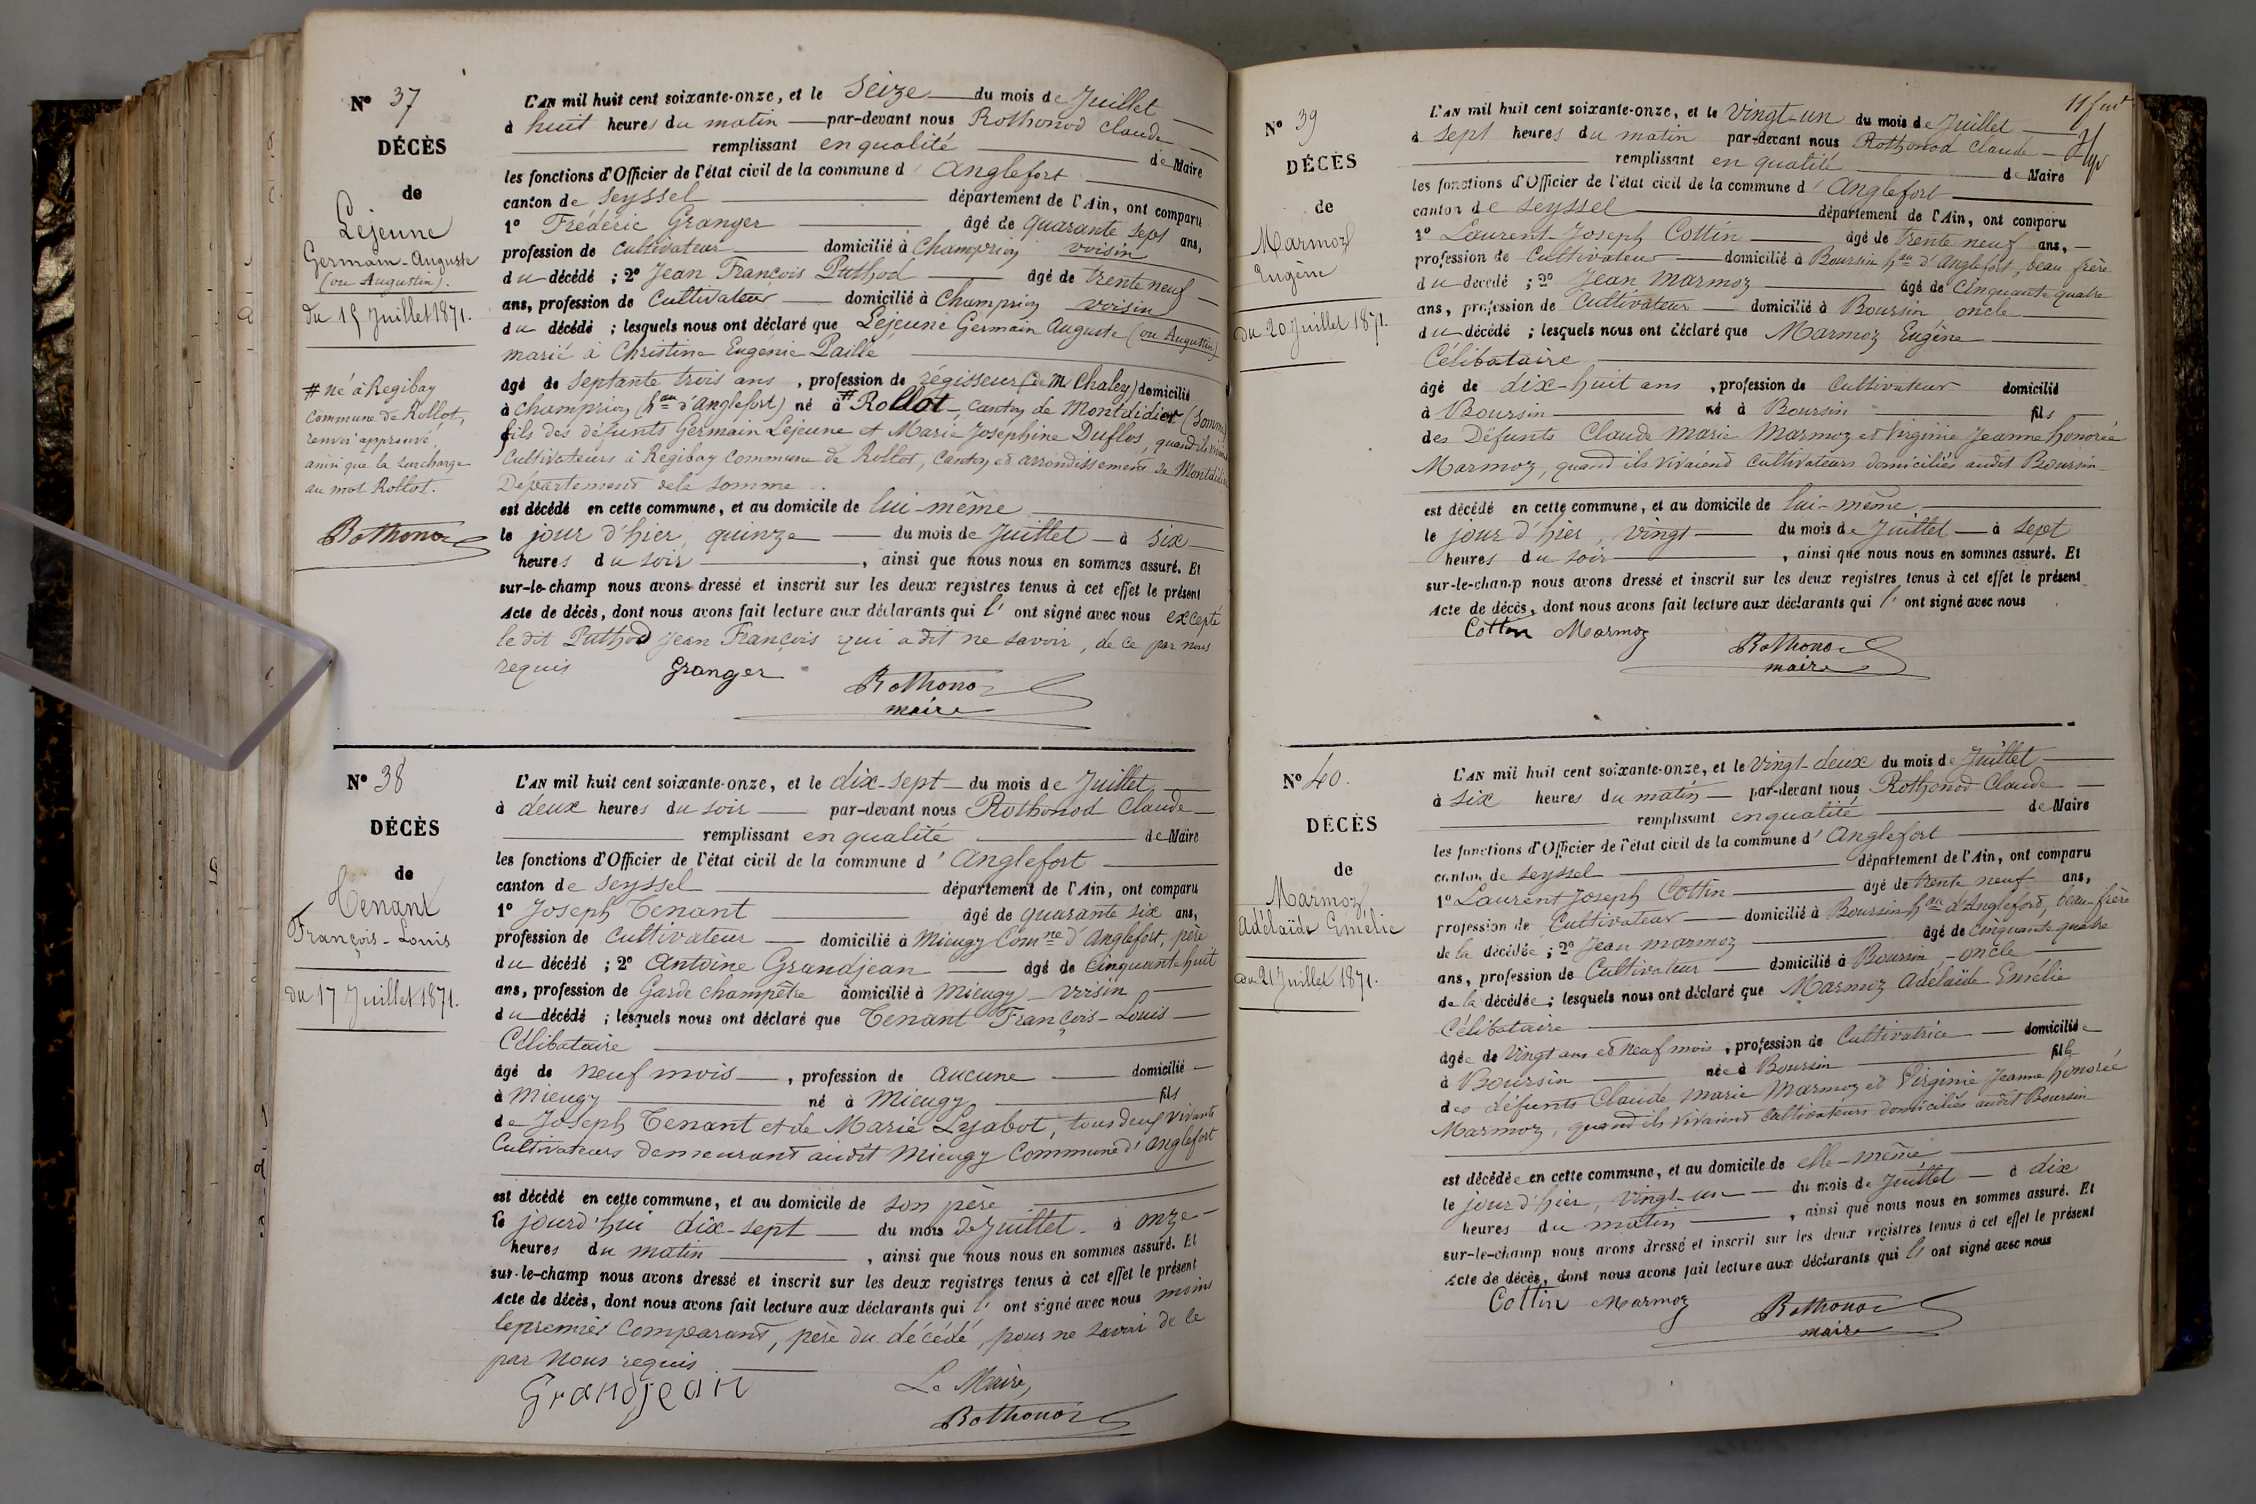 N° 37
DÉCÈS
de
Lejeune
Germain-Auguste
(ou Augustin).
du 15 Juillet 1871.
# né à Regibay
Commune de Rollot,
renvoi approuvé,
ainsi que la surcharge
au mot Rollot.
Rothonod
L'AN mil huit cent soixante-onze, et le seize du mois de Juillet
à huit heures du matin par-devant nous Rothonod Claude
remplissant en qualité de Maire
les fonctions d'Officier de l'état civil de la commune d'Anglefort
canton de Seyssel département de l'Ain, ont comparu
1° Frédéric Granger âgé de quarante sept ans,
profession de Cultivateur domicilié à Champrion voisin
du décédé ; 2° Jean François Puthod âgé de trente neuf
ans, profession de Cultivateur domicilié à Champrion voisin
du décédé ; lesquels nous ont déclaré que Lejeune Germain Auguste (ou Augustin)
marié à Christine Eugénie Paille
âgé de septante trois ans, profession de régisseur (de M Chaley) domicilié
à Champrion (hau d'Anglefort) né à # Rollot, Canton de Montdidier (Somme)
fils des défunts Germain Lejeune et Marie Josephine Duflos, quand ils vivaient
Cultivateurs à Regibay Commune de Rollot, Canton et arrondissement de Montdidier
Département de la Somme
est décédé en cette commune, et au domicile de lui-même
le jour d'hier, quinze du mois de Juillet à six
heures du soir, ainsi que nous nous en sommes assuré. Et
sur-le-champ nous avons dressé et inscrit sur les deux registres tenus à cet effet le présent
Acte de décès, dont nous avons fait lecture aux déclarants qui l' ont signé avec nous excepté
le dit Puthod Jean François qui a dit ne savoir, de ce par nous
requis
Granger Rothonod
maire
N° 38
DÉCÈS
de
Tenant
François-Louis
du 17 Juillet 1871.
L'AN mil huit cent soixante-onze, et le dix-sept du mois de Juillet
à deux heures du soir par-devant nous Rothonod Claude
remplissant en qualité de Maire
les fonctions d'Officier de l'état civil de la commune d'Anglefort
canton de Seyssel département de l'Ain, ont comparu
1° Joseph Tenant âgé de quarante six ans,
profession de Cultivateur domicilié à Mieugy Comne d'Anglefort, père
du décédé ; 2° Antoine Grandjean âgé de cinquante huit
ans, profession de Garde champêtre domicilié à Mieugy voisin
du décédé ; lesquels nous ont déclaré que Tenant François-Louis
Célibataire
âgé de neuf mois, profession de aucune domicilié
à Mieugy né à Mieugy fils
de Joseph Tenant et de Marie Lejabot, tous deux vivants
Cultivateurs demeurant audit Mieugy Commune d'Anglefort
est décédé en cette commune, et au domicile de son père
le jourd'hui dix-sept du mois de Juillet à onze
heures du matin, ainsi que nous nous en sommes assuré. Et
sur-le-champ nous avons dressé et inscrit sur les deux registres tenus à cet effet le présent
Acte de décès, dont nous avons fait lecture aux déclarants qui l' ont signé avec nous moins
le premier comparant, père du décédé, pour ne savoir de ce
par nous requis.
Grandjean Le Maire,
Rothonod
N° 39
DÉCÈS
de
Marmoz
Eugène
du 20 Juillet 1871.
L'AN mil huit cent soixante-onze, et le vingt-un du mois de Juillet
à sept heures du matin par-devant nous Rothonod Claude
remplissant en qualité de Maire
les fonctions d'Officier de l'état civil de la commune d'Anglefort
canton de Seyssel département de l'Ain, ont comparu
1° Laurent-Joseph Cottin âgé de trente neuf ans,
profession de Cultivateur domicilié à Boursin hau d'Anglefort, beau frère
du décédé ; 2° Jean Marmoz âgé de cinquante quatre
ans, profession de Cultivateur domicilié à Boursin, oncle
du décédé ; lesquels nous ont déclaré que Marmoz Eugène
Célibataire
âgé de dix-huit ans, profession de Cultivateur domicilié
à Boursin né à Boursin fils
des Défunts Claude Marie Marmoz et Virginie Jeanne honorée
Marmoz, quand ils vivaient cultivateurs domiciliés audit Boursin
est décédé en cette commune, et au domicile de lui-même
le jour d'hier, vingt du mois de Juillet à sept
heures du soir, ainsi que nous nous en sommes assuré. Et
sur-le-champ nous avons dressé et inscrit sur les deux registres tenus à cet effet le présent
Acte de décès, dont nous avons fait lecture aux déclarants qui l' ont signé avec nous
Cottin Marmoz Rothonod
maire
N° 40.
DÉCÈS
de
Marmoz
Adélaïde Emélie
du 21 Juillet 1871.
L'AN mil huit cent soixante-onze, et le vingt-deux du mois de Juillet
à six heures du matin par-devant nous Rothonod Claude
remplissant en qualité de Maire
les fonctions d'Officier de l'état civil de la commune d'Anglefort
canton de Seyssel département de l'Ain, ont comparu
1° Laurent Joseph Cottin âgé de trente neuf ans,
profession de Cultivateur domicilié à Boursin hau d'Anglefort, beau-frère
de la décédée ; 2° Jean Marmoz âgé de cinquante quatre
ans, profession de Cultivateur domicilié à Boursin, oncle
de la décédée ; lesquels nous ont déclaré que Marmoz Adélaïde Emélie
Célibataire
âgée de vingt ans et neuf mois, profession de Cultivatrice domiciliée
à Boursin née à Boursin fille
des défunts Claude Marie Marmoz et Virginie Jeanne honorée
Marmoz, quand ils vivaient Cultivateurs domiciliés audit Boursin
est décédée en cette commune, et au domicile de elle-même
le jour d'hier, vingt-un du mois de Juillet à dix
heures du matin, ainsi que nous nous en sommes assuré. Et
sur-le-champ nous avons dressé et inscrit sur les deux registres tenus à cet effet le présent
Acte de décès, dont nous avons fait lecture aux déclarants qui l' ont signé avec nous
Cottin Marmoz Rothonod
maire